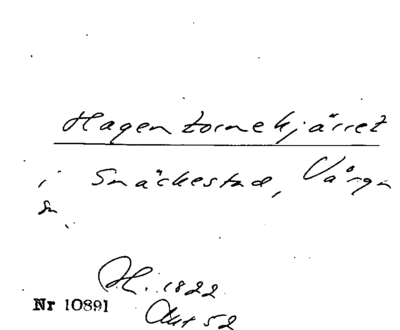 Hagentornekjärret
i Snäckestad, Vånga
sn.
H. 1822
Nr 10891
Akt 52